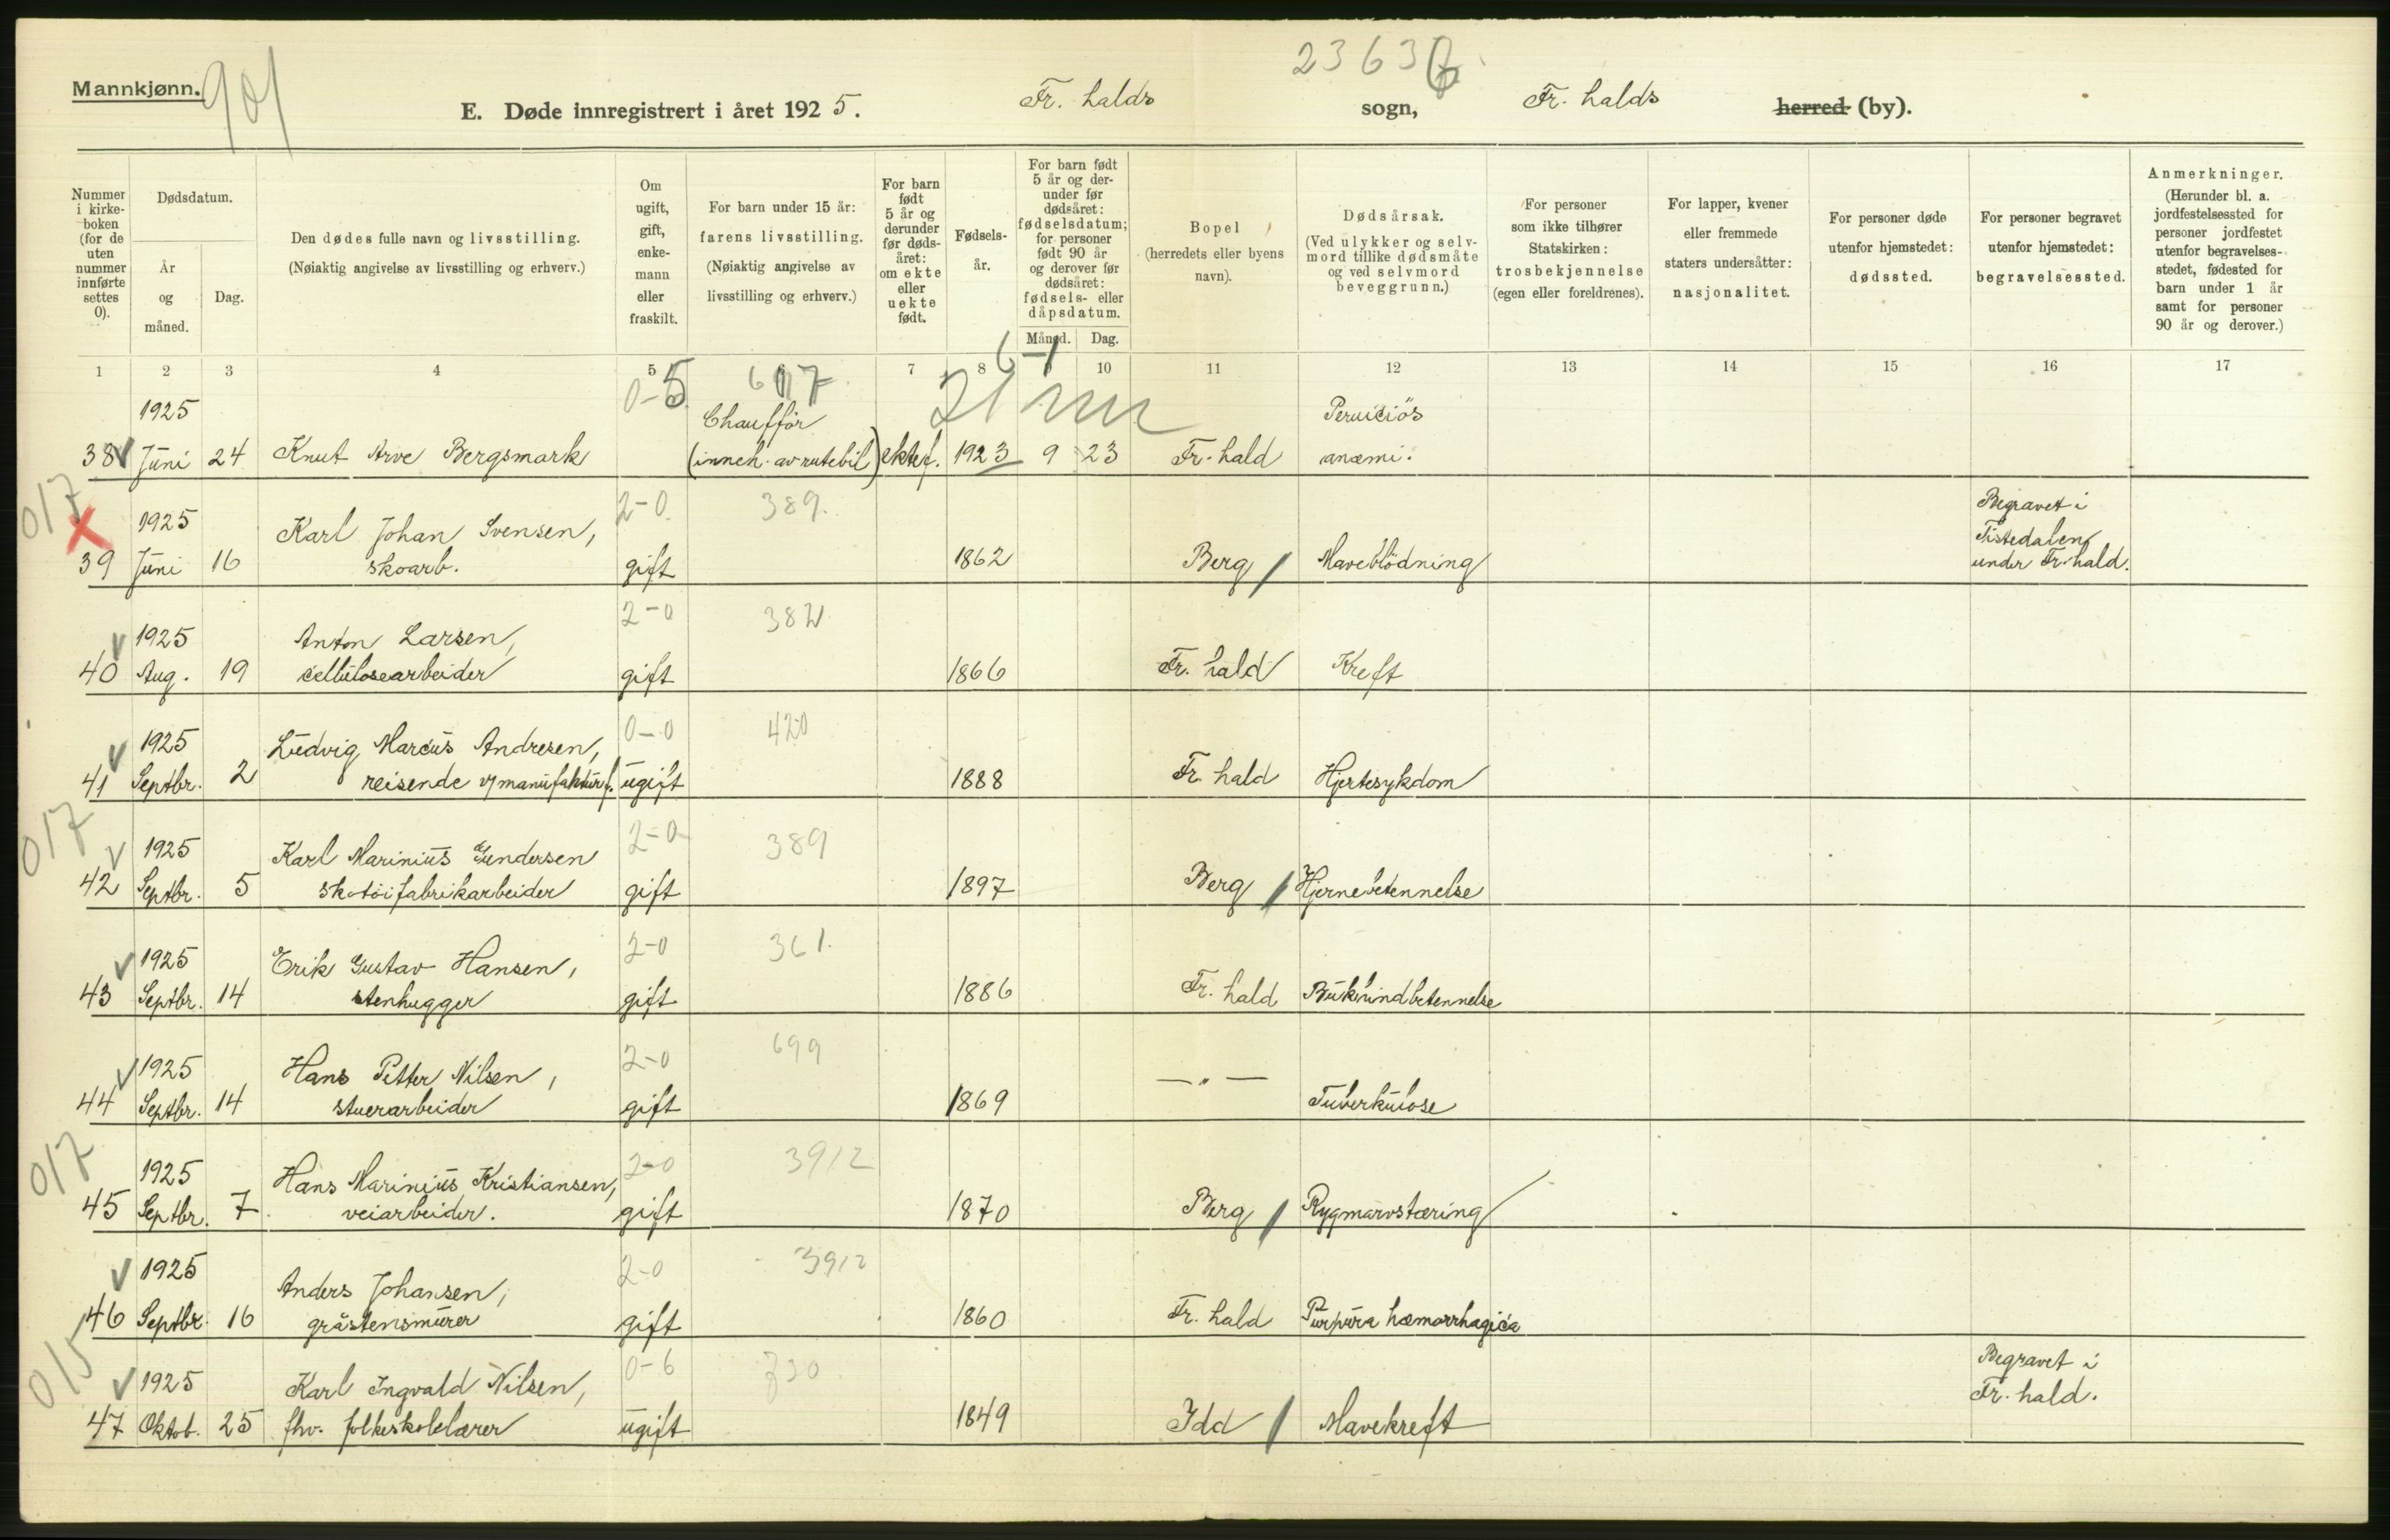 Mannkjønn.
901
23636
E. Døde innregistrert i året 1925. Fr. halds sogn, Fr. halds herred (by).
Nummer i kirkeboken (for de uten nummer innførte settes 0).
Dødsdatum.
År og måned.
Dag.
Den dødes fulle navn og livsstilling.
(Nøiaktig angivelse av livsstilling og erhverv.)
Om ugift, gift, enkemann eller fraskilt.
For barn under 15 år:
farens livsstilling.
(Nøiaktig angivelse av livsstilling og erhverv.)
For barn født 5 år og derunder før dødsåret: om ekte eller uekte født.
Fødselsår.
For barn født 5 år og derunder før dødsåret: fødselsdatum; for personer født 90 år og derover før dødsåret: fødsels- eller dåpsdatum.
Måned. Dag.
Bopel
(herredets eller byens navn).
Dødsårsak.
(Ved ulykker og selvmord tillike dødsmåte og ved selvmord beveggrunn.)
For personer som ikke tilhører Statskirken: trosbekjennelse (egen eller foreldrenes).
For lapper, kvener eller fremmede staters undersåtter: nasjonalitet.
For personer døde utenfor hjemstedet: dødssted.
For personer begravet utenfor hjemstedet: begravelsessted.
Anmerkninger.
(Herunder bl. a. jordfestelsessted for personer jordfestet utenfor begravelsesstedet, fødested for barn under 1 år samt for personer 90 år og derover.)
1 2 3 4 5 6 7 8 10 11 12 13 14 15 16 17
0-5 6-1
1925 Chaufför Perniciös
38 Juni 24 Knut Arve Bergsmark (inneh. av rutebil) ektef. 1923 9 23 Fr. hald anæmi.
017 2-0 389. Begravet i
1925 Karl Johan Svensen, Tistedalen
39 Juni 16 skoarb. gift 1862 Berg Maveblödning under Fr. hald.
2-0 382
1925 Anton Larsen,
40 Aug. 19 cellulosearbeider gift 1866 Fr. hald Kreft
0-0 420
1925 Ludvig Marcus Andresen,
41 Septbr. 2 reisende v/manufakturf. ugift 1888 Fr. hald Hjertesykdom
017 2-0 389
1925 Karl Marinius Gundersen
42 Septbr. 5 skotöifabrikarbeider gift 1897 Berg Hjernebetennelse
2-0 361.
1925 Erik Gustav Hansen,
43 Septbr. 14 stenhugger gift 1886 Fr. hald Bukhindbetennelse
2-0 699
1925 Hans Petter Nilsen,
44 Septbr. 14 stuerarbeider gift 1869 — " — Tuberkulose
017 2-0 3912
1925 Hans Marinius Kristiansen,
45 Septbr. 7 veiarbeider. gift 1870 Berg Rygmarvstæring
2-0 3912
1925 Anders Johansen,
46 Septbr. 16 gråstensmurer gift 1860 Fr. hald Purpura hæmorrhagica
015 0-6 730 Begravet i
1925 Karl Ingvald Nilsen, Fr. hald.
47 Oktob. 25 fhv. folkeskolelærer ugift 1849 Idd Mavekreft